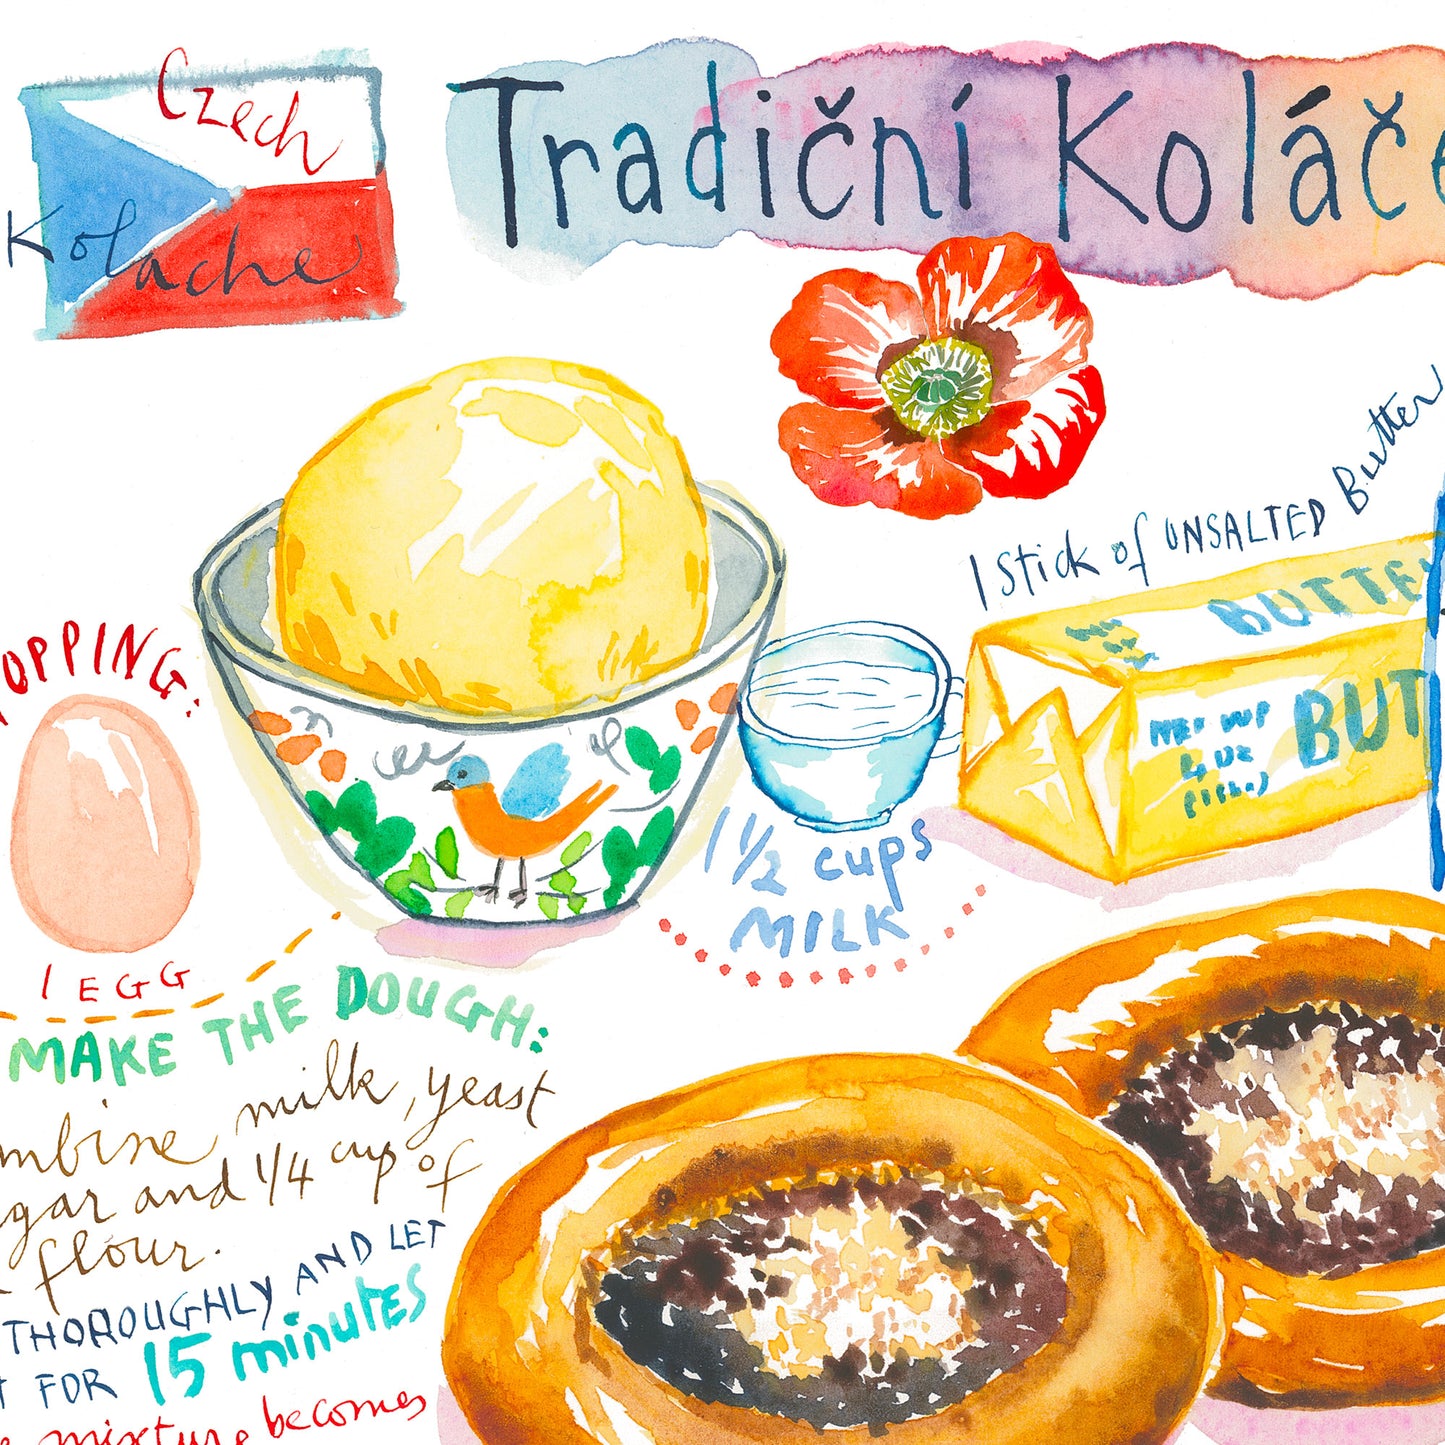 Czech
Kolache
Tradiční Koláče
1 stick of UNSALTED Butter
BUTTE
BUT
TOPPING:
1 EGG
1 1/2 cups
MILK
MAKE THE DOUGH:
mbine milk, yeast
gar and 1/4 cup of
flour.
THOROUGHLY AND LET
FOR 15 minutes
mixture becomes